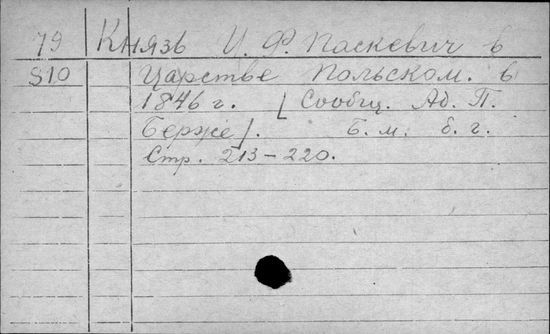 79 Князь И. Ф. Паскевич в
S10 Царстве Польском. в
1846 г. [Сообщ. Ад. П.
Берже]. Б. м. б. г.
Стр. 213–220.